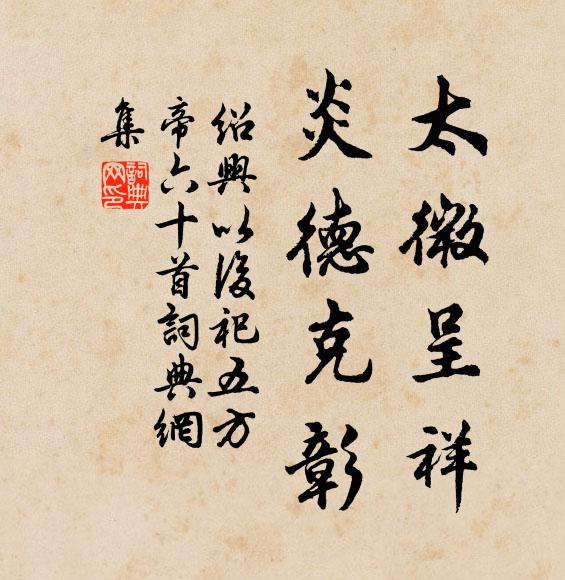 太微呈祥
炎德克彰
紹興以後祀五方
帝六十首詞典網
集
詞典
网印